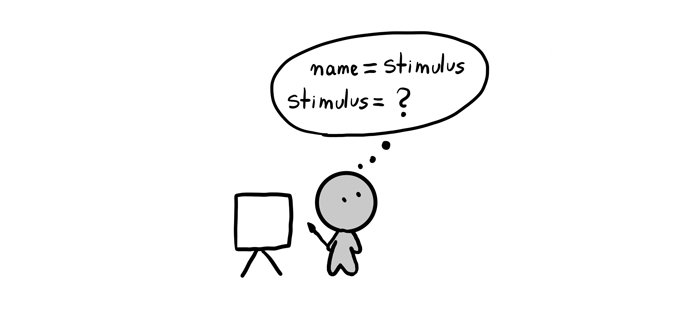 name = stimulus
stimulus = ?